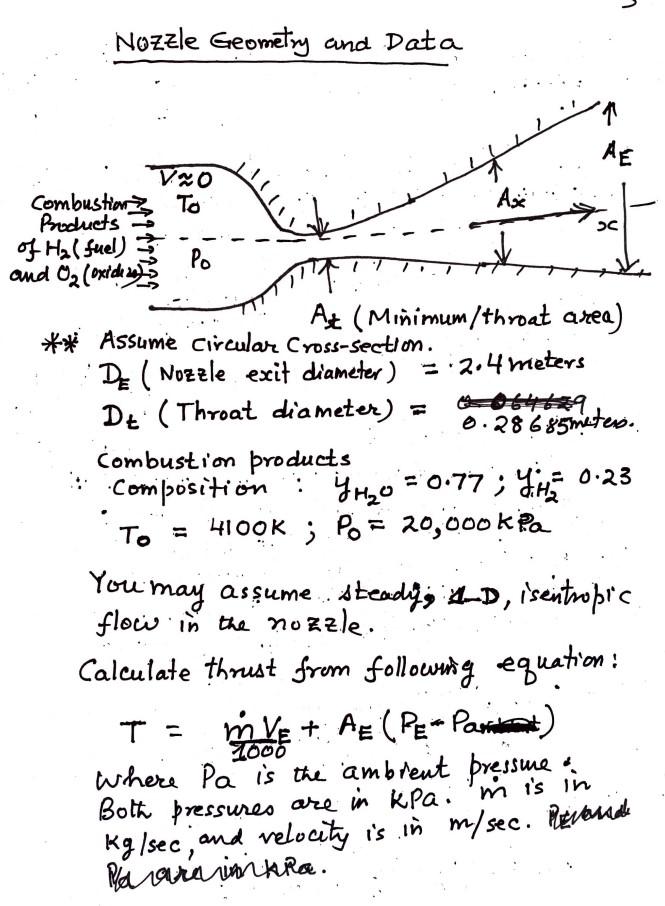 Nozzle Geometry and Data
A_E
V≈0
Combustion
T_o
A_x
Products
x
of H₂ (fuel)
P_o
and O₂ (oxidizer)
A_t (Minimum/throat area)
** Assume Circular Cross-section.
D_E (Nozzle exit diameter) = 2.4 meters
D_t (Throat diameter) =
0.28685 meters.
Combustion products
Composition : y_H₂O = 0.77 ; y_H₂ = 0.23
T_o = 4100K ; P_o = 20,000 kPa
You may assume steady, 1-D, isentropic
flow in the nozzle.
Calculate thrust from following equation:
T = ṁ V_E / 1000 + A_E (P_E - Pa)
where Pa is the ambient pressure.
Both pressures are in kPa. ṁ is in
kg/sec, and velocity is in m/sec.